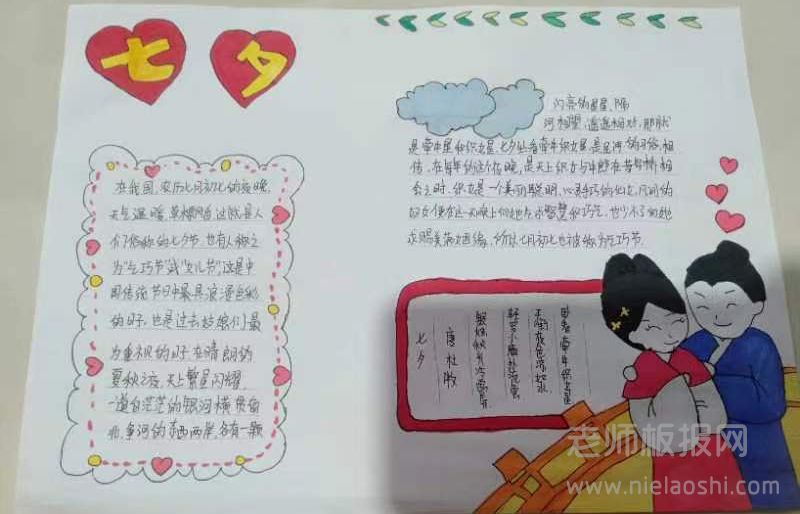 七
夕
在我国，农历七月初七的夜晚，
天气温暖，草木飘香，这就是人
们俗称的七夕节，也有人称之
为“乞巧节”或“女儿节”，这是中
国传统节日中最具浪漫色彩
的节日，也是过去姑娘们最
为重视的日子，在晴朗的
夏秋之夜，天上繁星闪耀，
一道白茫茫的银河横贯南
北，争河的东西两岸，各有一颗
闪亮的星星，隔
河相望，遥遥相对，那就
是牵牛星和织女星，七夕坐看牵牛织女星，是民间的习俗，相
传，在每年的这个夜晚，是天上织女与牛郎在鹊桥相
会之时，织女是一个美丽聪明，心灵手巧的仙女，凡间的
妇女便在这一天晚上向她乞求智慧和巧艺，也少不了向她
求赐美满姻缘，所以七月初七也被称为乞巧节
七夕
唐 杜牧
银烛秋光冷画屏，
轻罗小扇扑流萤
天街夜色凉如水，
卧看牵牛织女星
老师板报网
www.nielaoshi.com